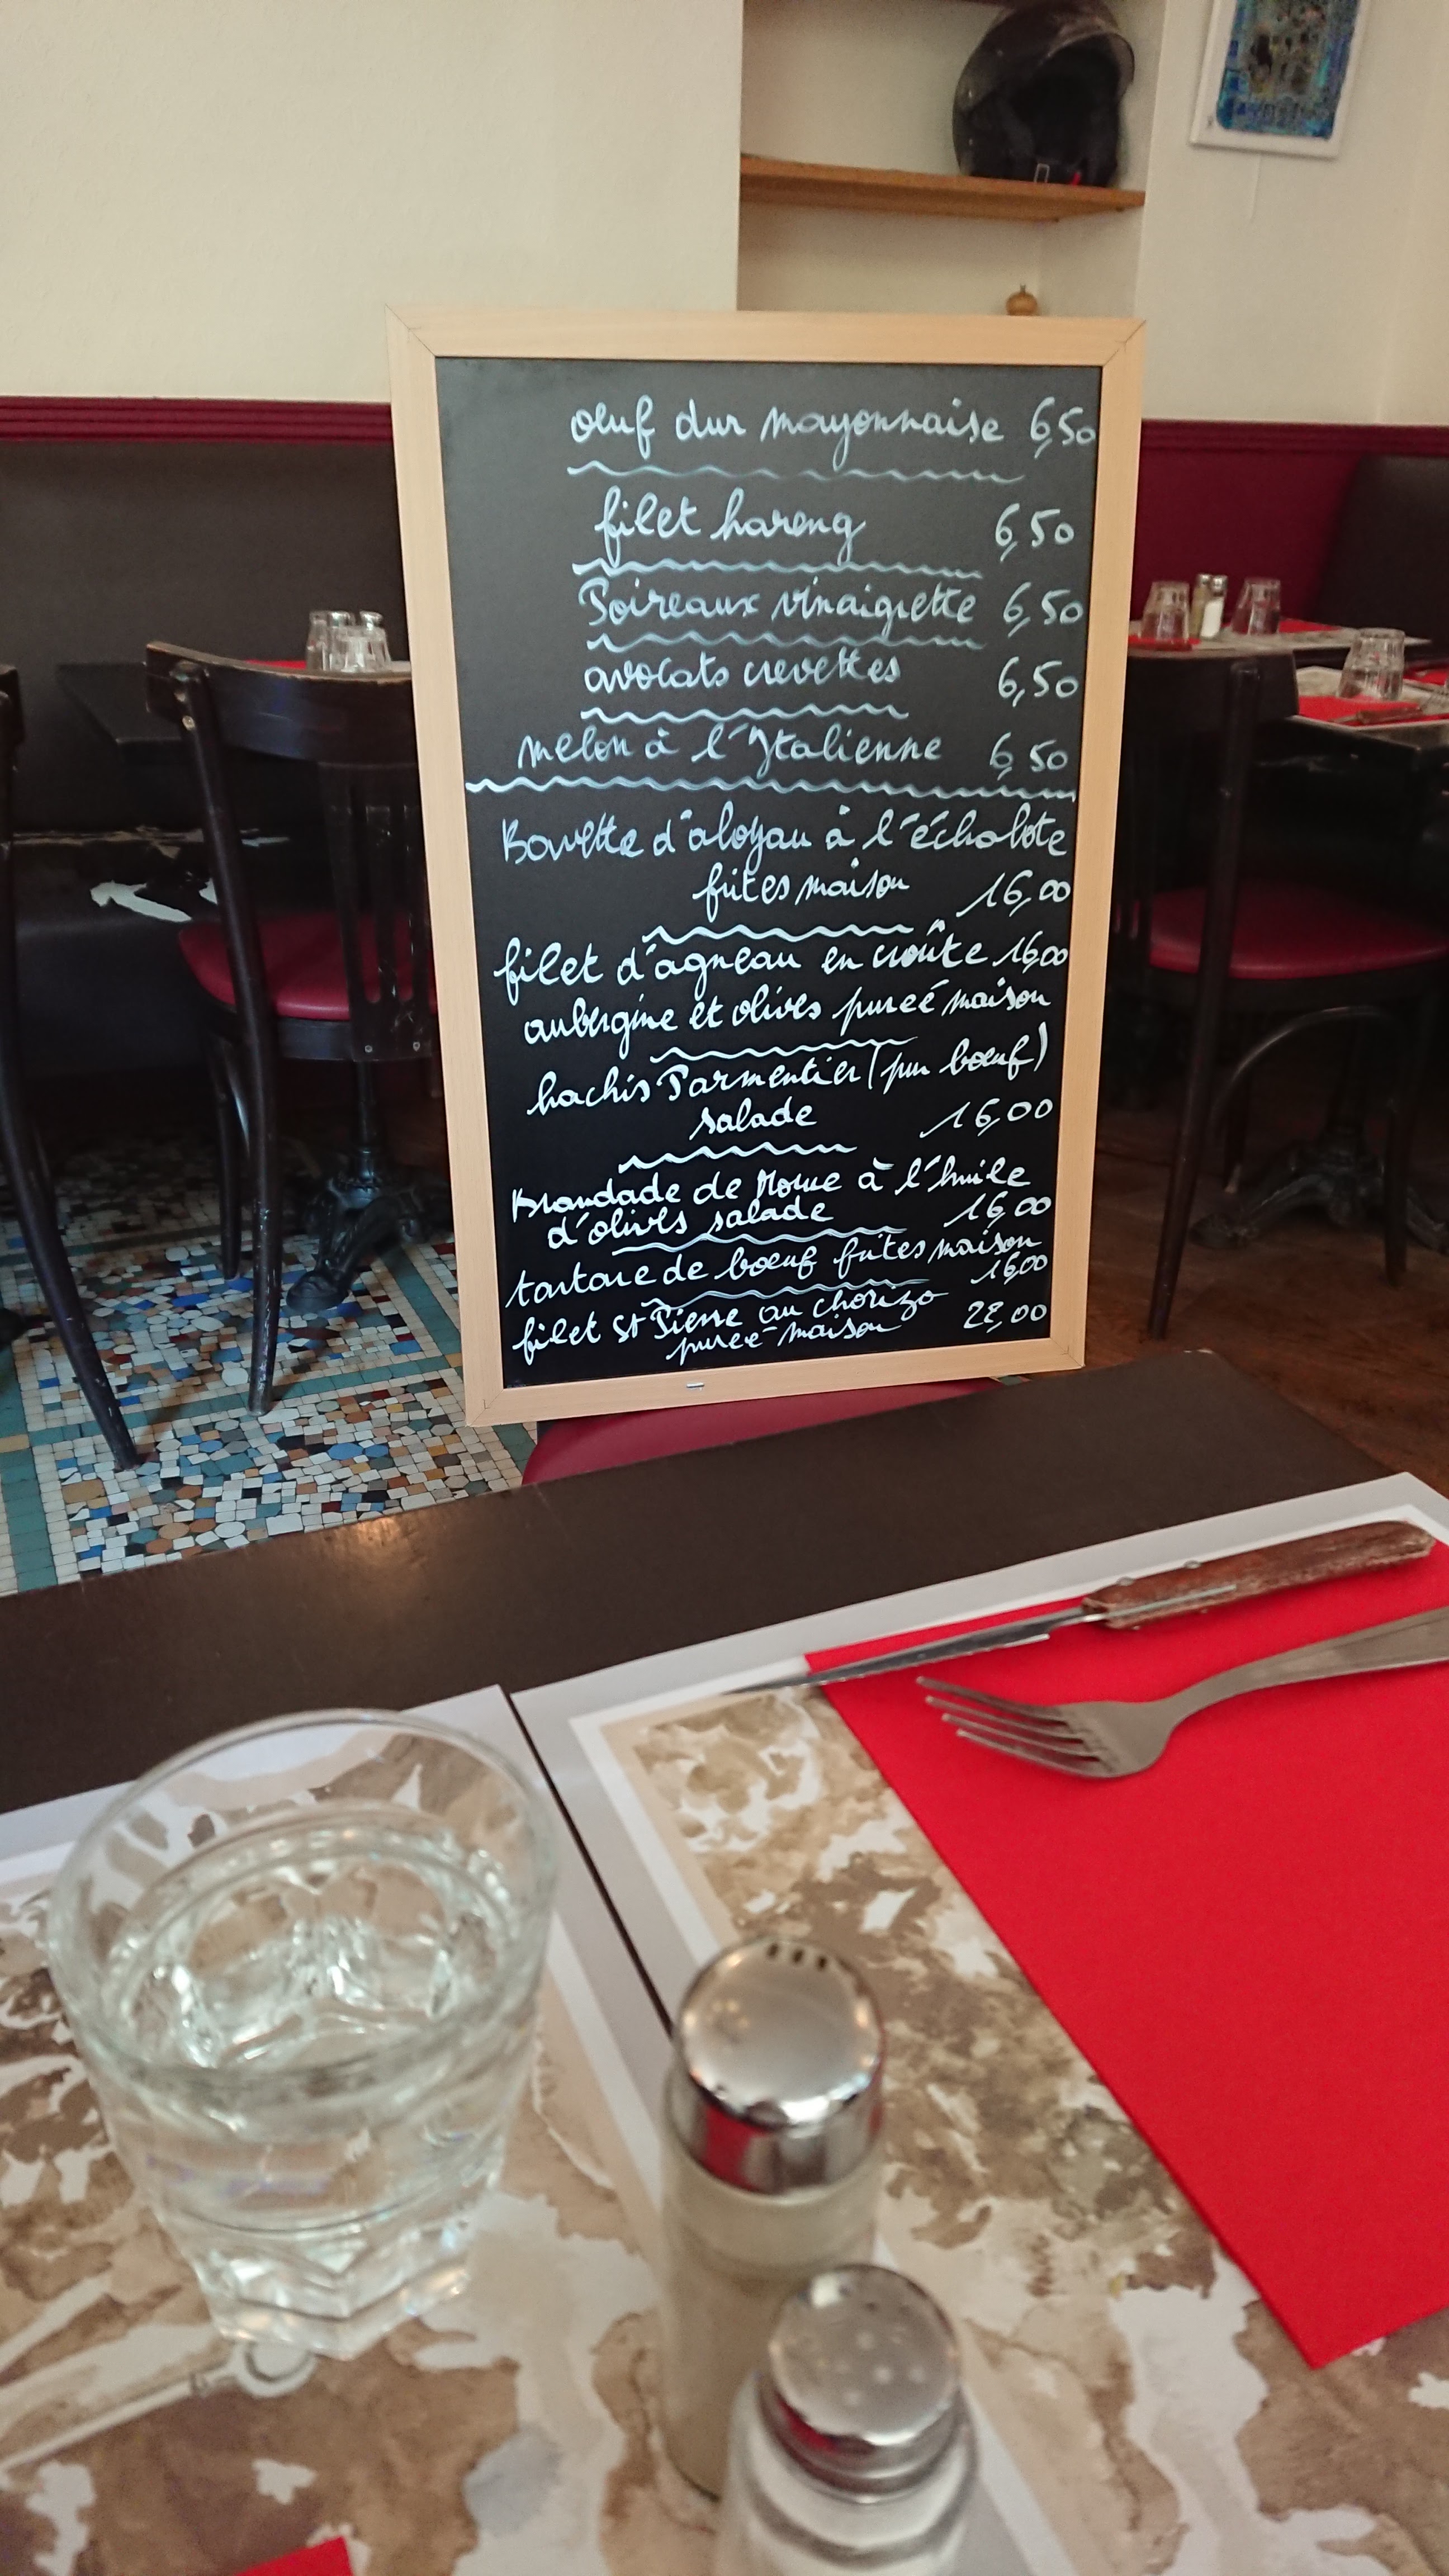 oeuf dur mayonnaise 6,50
filet hareng 6,50
Poireaux vinaigrette 6,50
avocats crevettes 6,50
melon à l'Italienne 6,50
Bavette d'aloyau à l'échalote
frites maison 16,00
filet d'agneau en croûte 16,00
aubergine et olives pureé maison
hachis Parmentier (pur boeuf)
salade 16,00
Brandade de Morue à l'huile
d'olives salade 16,00
tartare de boeuf frites maison
16,00
filet St Pierre au chorizo 22,00
pureé maison